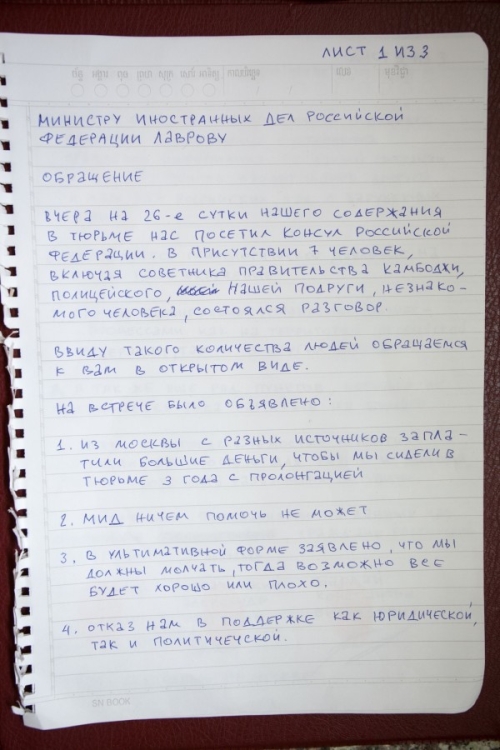 ЛИСТ 1 ИЗ 3
МИНИСТРУ ИНОСТРАННЫХ ДЕЛ РОССИЙСКОЙ
ФЕДЕРАЦИИ ЛАВРОВУ
ОБРАЩЕНИЕ
ВЧЕРА НА 26-е СУТКИ НАШЕГО СОДЕРЖАНИЯ
В ТЮРЬМЕ НАС ПОСЕТИЛ КОНСУЛ РОССИЙСКОЙ
ФЕДЕРАЦИИ. В ПРИСУТСТВИИ 7 ЧЕЛОВЕК,
ВКЛЮЧАЯ СОВЕТНИКА ПРАВИТЕЛЬСТВА КАМБОДЖИ,
ПОЛИЦЕЙСКОГО, НАШЕЙ ПОДРУГИ, НЕЗНАКО-
МОГО ЧЕЛОВЕКА, СОСТОЯЛСЯ РАЗГОВОР.
ВВИДУ ТАКОГО КОЛИЧЕСТВА ЛЮДЕЙ ОБРАЩАЕМСЯ
К ВАМ В ОТКРЫТОМ ВИДЕ.
НА ВСТРЕЧЕ БЫЛО ОБЪЯВЛЕНО:
1. ИЗ МОСКВЫ С РАЗНЫХ ИСТОЧНИКОВ ЗАПЛА-
ТИЛИ БОЛЬШИЕ ДЕНЬГИ, ЧТОБЫ МЫ СИДЕЛИ В
ТЮРЬМЕ 3 ГОДА С ПРОЛОНГАЦИЕЙ
2. МИД НИЧЕМ ПОМОЧЬ НЕ МОЖЕТ
3. В УЛЬТИМАТИВНОЙ ФОРМЕ ЗАЯВЛЕНО, ЧТО МЫ
ДОЛЖНЫ МОЛЧАТЬ, ТОГДА ВОЗМОЖНО ВСЕ
БУДЕТ ХОРОШО ИЛИ ПЛОХО.
4. ОТКАЗ НАМ В ПОДДЕРЖКЕ КАК ЮРИДИЧЕСКОЙ,
ТАК И ПОЛИТИЧЕЧСКОЙ.
SN BOOK